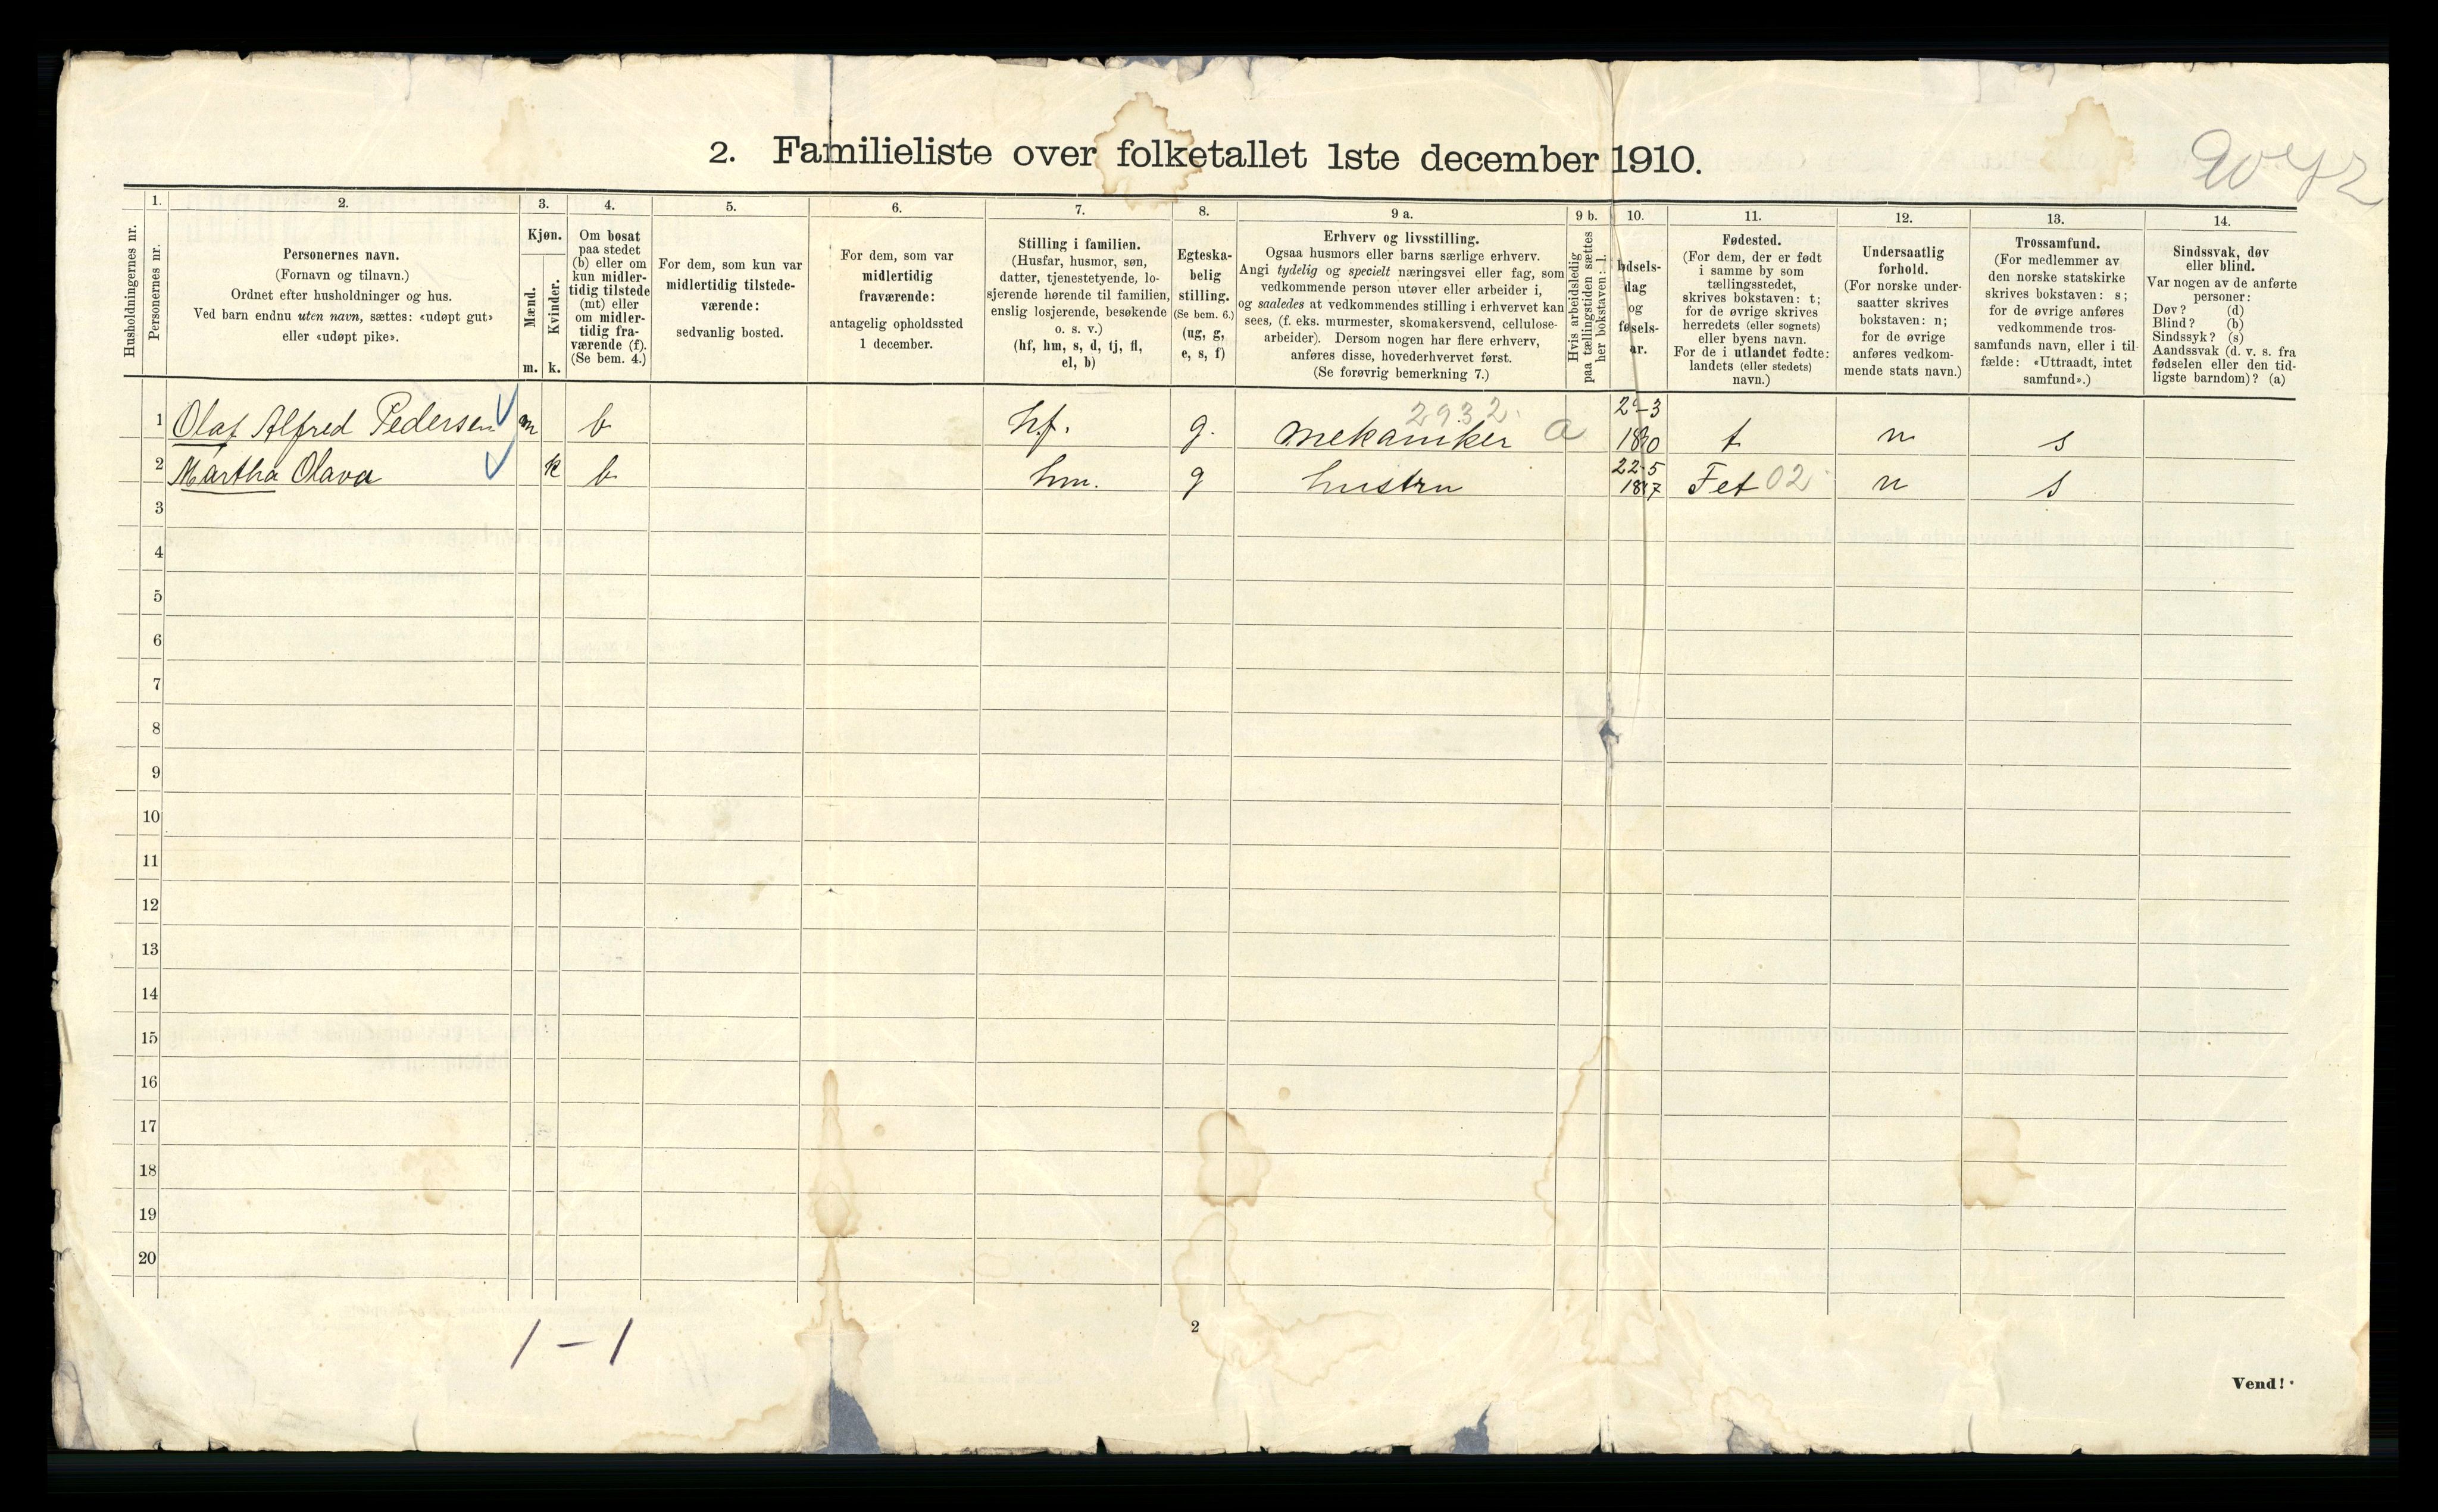 2. Familieliste over folketallet 1ste december 1910.
Husholdningernes nr.
1.
Personernes nr.
2.
Personernes navn.
(Fornavn og tilnavn.)
Ordnet efter husholdninger og hus.
Ved barn endnu uten navn, sættes: «udøpt gut»
eller «udøpt pike».
3.
Kjøn.
Mænd.
m.
Kvinder.
k.
4.
Om bosat
paa stedet
(b) eller om
kun midler-
tidig tilstede
(mt) eller
om midler-
tidig fra-
værende (f).
(Se bem. 4.)
5.
For dem, som kun var
midlertidig tilstede-
værende:
sedvanlig bosted.
6.
For dem, som var
midlertidig
fraværende:
antagelig opholdssted
1 december.
7.
Stilling i familien.
(Husfar, husmor, søn,
datter, tjenestetyende, lo-
sjerende hørende til familien,
enslig losjerende, besøkende
o. s. v.)
(hf, hm, s, d, tj, fl,
el, b)
8.
Egteska-
belig
stilling.
(Se bem. 6.)
(ug, g,
e, s, f)
9 a.
Erhverv og livsstilling.
Ogsaa husmors eller barns særlige erhverv.
Angi tydelig og specielt næringsvei eller fag, som
vedkommende person utøver eller arbeider i,
og saaledes at vedkommendes stilling i erhvervet kan
sees, (f. eks. murmester, skomakersvend, cellulose-
arbeider). Dersom nogen har flere erhverv,
anføres disse, hovederhvervet først.
(Se forøvrig bemerkning 7.)
9 b.
Hvis arbeidsledig
paa tællingstiden sættes
her bokstaven: l.
10.
dsels-
dag
og
fødsels-
ar.
11.
Fødested.
(For dem, der er født
i samme by som
tællingsstedet,
skrives bokstaven: t;
for de øvrige skrives
herredets (eller sognets)
eller byens navn.
For de i utlandet fødte:
landets (eller stedets)
navn.)
12.
Undersaatlig
forhold.
(For norske under-
saatter skrives
bokstaven: n;
for de øvrige
anføres vedkom-
mende stats navn.)
13.
Trossamfund.
(For medlemmer av
den norske statskirke
skrives bokstaven: s;
for de øvrige anføres
vedkommende tros-
samfunds navn, eller i til-
fælde: «Uttraadt, intet
samfund».)
14.
Sindssvak, døv
eller blind.
Var nogen av de anførte
personer:
Døv? (d)
Blind? (b)
Sindssyk? (s)
Aandssvak (d. v. s. fra
fødselen eller den tid-
ligste barndom)? (a)
1 Olaf Alfred Pedersen m b hf. g. mekaniker 2932 a t n s
2 Martha Olava k b hm. g hustru 22-5 Fet 02 n s
3
4
5
6
7
8
9
10
11
12
13
14
15
16
17
18
19
20
1-1
2
Vend!